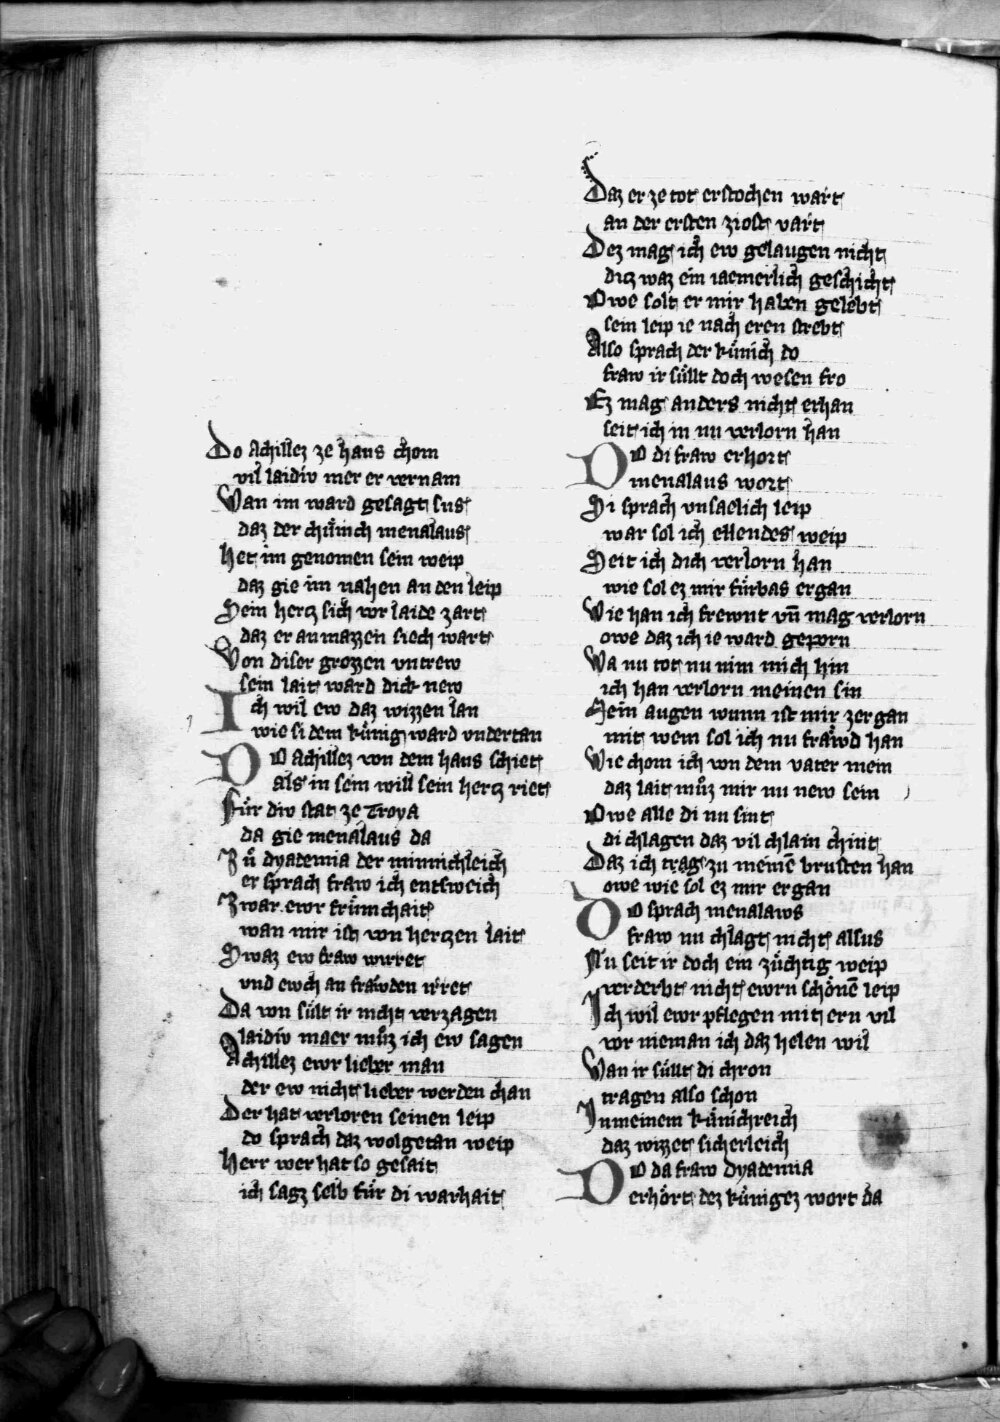 Do Achillez ze haus chom
vil laidiv mer er vernam
Wan im ward gesagt sus
daz der chünich menalaus
Het im genomen sein weip
daz gie im nahen an den leip
Sein hertz sich vor laide zart
daz er an mazzen siech wart
Von diser grozzen vntrew
sein lait ward dick new
Ich wil ew daz wizzen lan
wie si dem künig ward vndertan
Do Achillez von dem haus schiet
als in sein will sein hertz riet
Für div stat ze Troya
da gie menalaus da
Zü dyademia der minnichleich
er sprach fraw ich entsweich
Zwar ewr frümchait
wan mir ist von hertzen lait
Swaz ew fraw wirret
vnd ewch an fräwden irret
Da von sült ir nicht verzagen
laidiv maer müz ich ew sagen
Achillez ewr lieber man
der ew nicht lieber werden chan
Der hat verloren seinen leip
do sprach daz wolgetan weip
Herr wer hat so gesait
ich sagz selb für di warhait
Daz er ze tot erstochen wart
an der ersten ziost vart
Dez mag ich ew gelaugen nicht
ditz waz ein iaemerlich geschicht
Owe solt er mir haben gelebt
sein leip ie nach eren strebt
Also sprach der künich do
fraw ir süllt doch wesen fro
Ez mag anders nicht erhan
seit ich in nu verlorn han
Do di fraw erhort
menalaus wort
Si sprach vnsaelich leip
war sol ich ellendes weip
Seit ich dich verlorn han
wie sol ez mir fürbas ergan
Wie han ich frewnt vn̄ mag verlorn
owe daz ich ie ward geporn
Wa nu tot nu nim mich hin
ich han verlorn meinen sin
Mein augen wunn ist mir zergan
mit wem sol ich nu fräwd han
Wie chom ich von dem vater mein
daz lait müz mir nu new sein
Owe alle di nu sint
di chlagen daz vil chlain chint
Daz ich trag zu meinē brusten han
owe wie sol ez mir ergan
Do sprach menalaws
fraw nu chlagt nicht alsus
Nu seit ir doch ein züchtig weip
verderbt nicht ewrn schönē leip
Ich wil ewr pflegen mit ern vil
vor nieman ich daz helen wil
Wan ir süllt di chron
tragen also schon
In meinem künichreich
daz wizzet sicherleich
Do da fraw dyademia
erhört dez künigez wort da